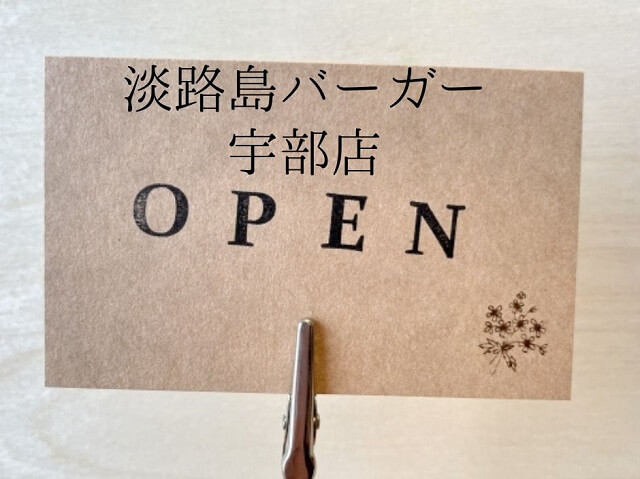 淡路島バーガー
宇部店
OPEN